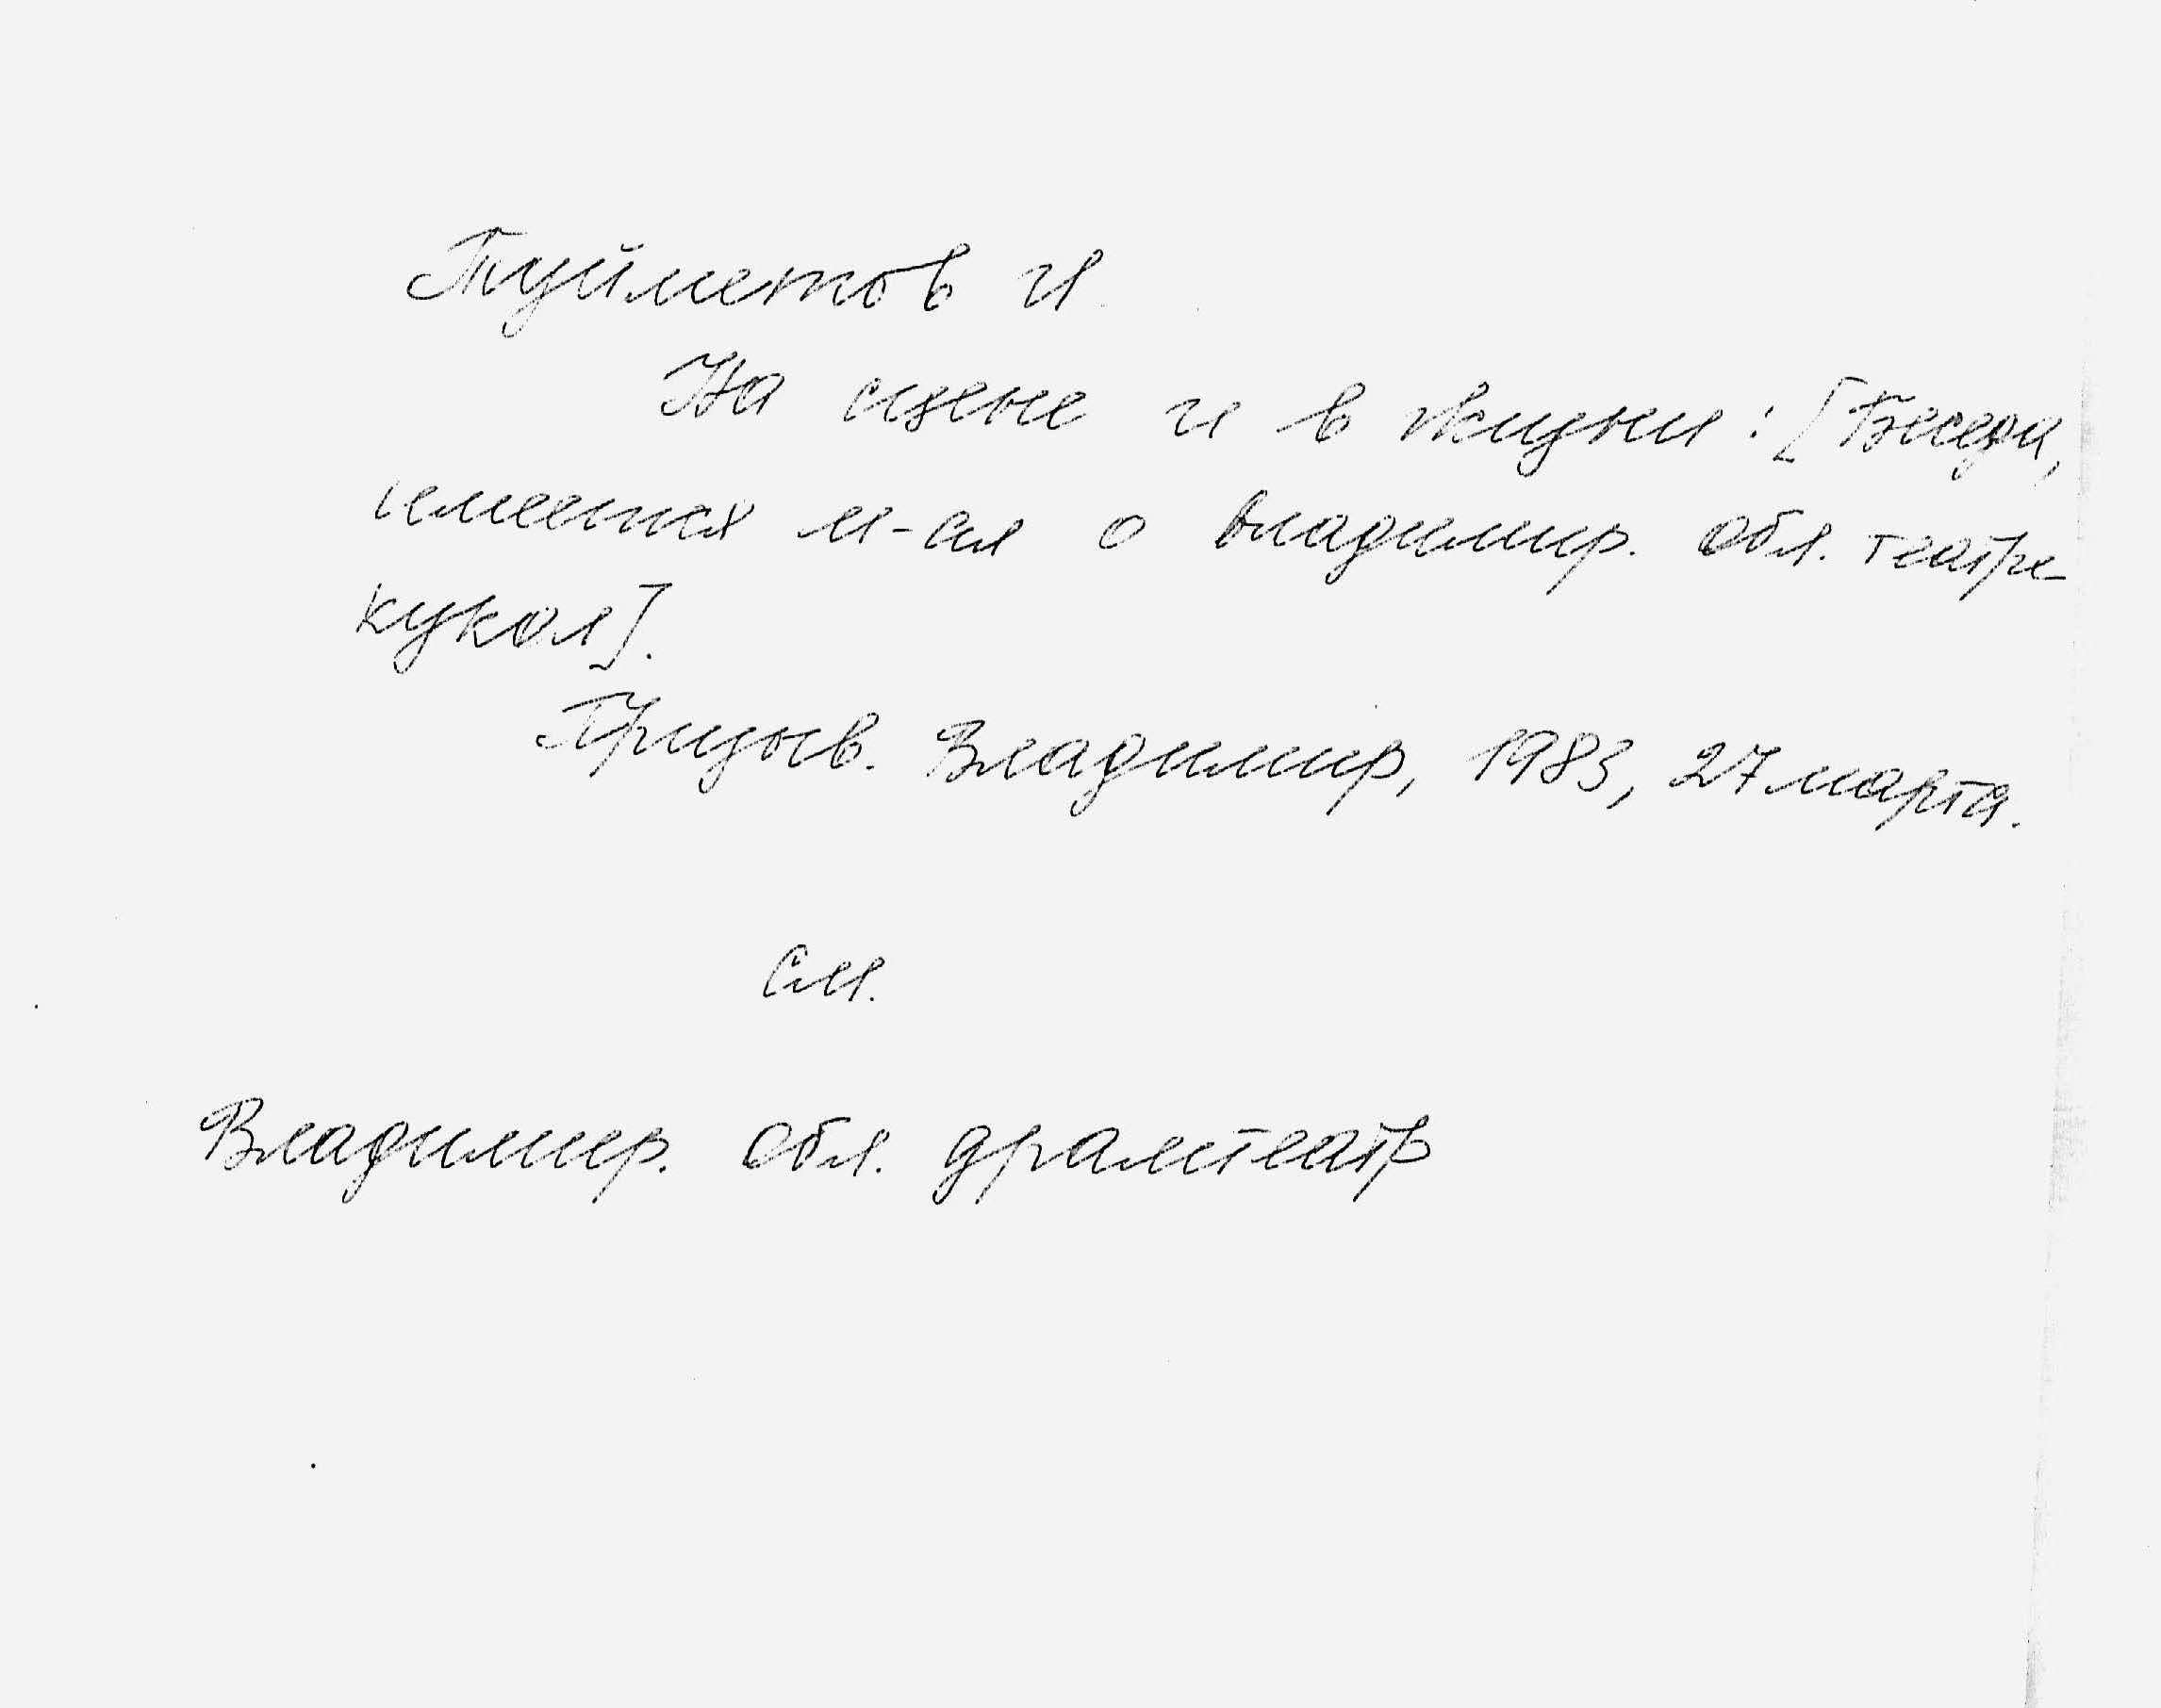 Туйметов И.
На сцене и в жизни : [Беседа,
имеется м-ал о владимир. обл. театре
кукол].
Призыв. Владимир, 1983, 27 марта.
См.
Владимир. обл. драмтеатр